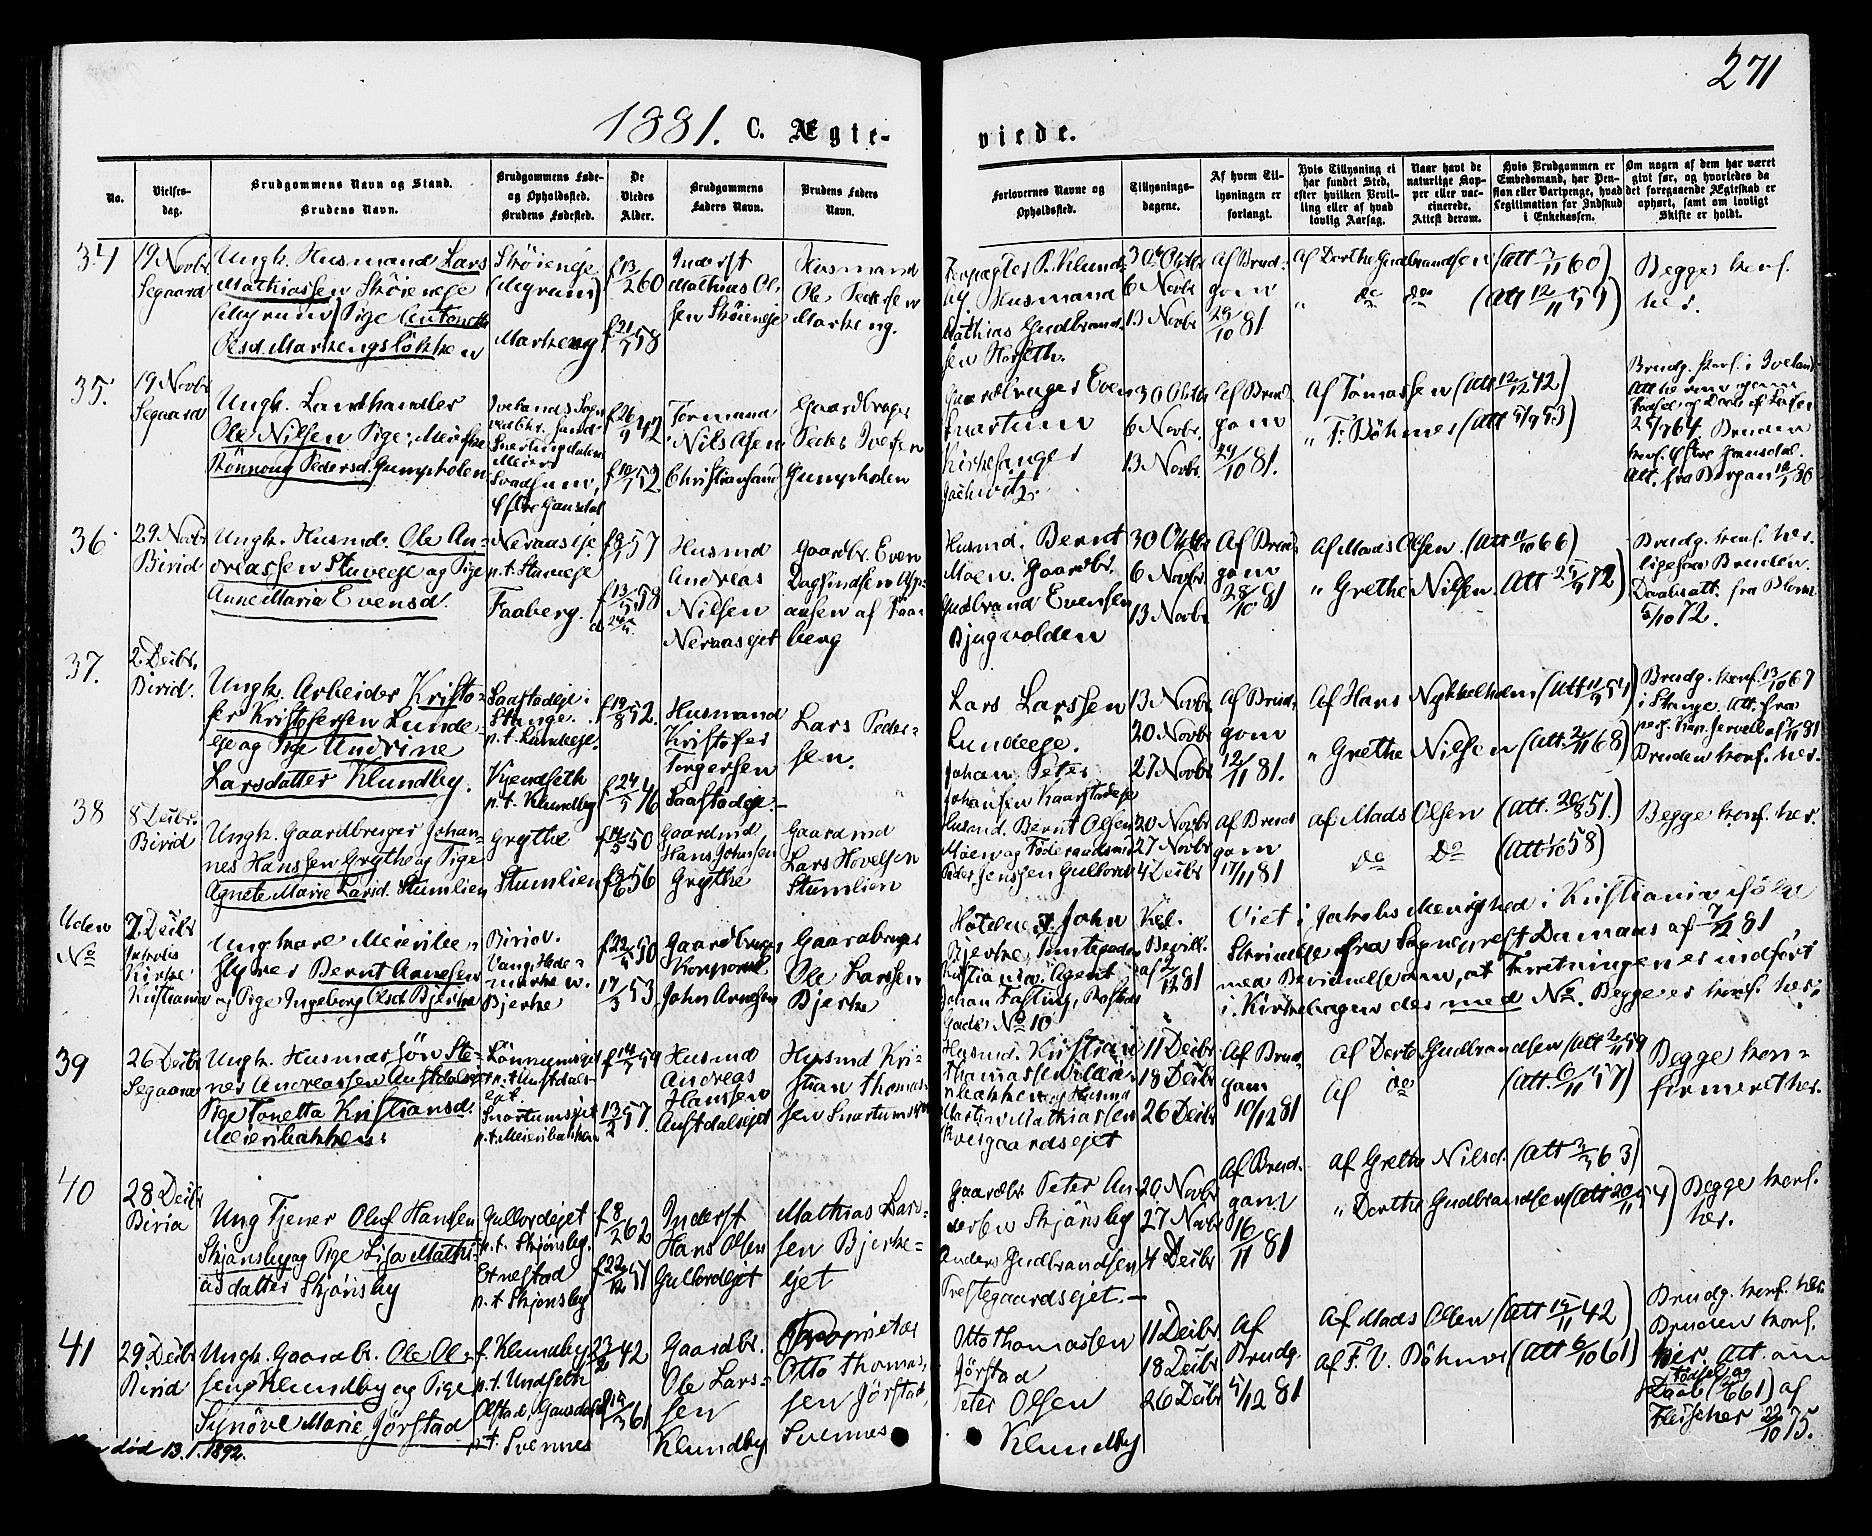 271
1881. C. Ægte-
viede.
No.
Vielses-
dag.
Brudgommens Navn og Stand.
Brudens Navn.
Brudgommens Føde-
og Opholdssted.
Brudens Fødested.
De
Viedes
Alder.
Brudgommens
Faders Navn.
Brudens Faders
Navn.
Forlovernes Navne og
Opholdssted.
Tillysnings-
dagene.
Af hvem Til-
lysningen er
forlangt.
Hvis Tillysning ei
har fundet Sted,
efter hvilken Bevil-
ling eller af hvad
lovlig Aarsag.
Naar havt de
naturlige Kop-
per eller vac-
cinerede.
Attest derom.
Hvis Brudgommen er
Embedsmand, har Pen-
sion eller Vartpenge, hvad
Legitimation for Indskud
i Enkekassen.
Om nogen af dem har været
givt før, og hvorledes da
det foregaaende Ægteskab er
ophørt, samt om lovligt
Skifte er holdt.
34
19 Novbr
Segaard
Ungk. Husmand Lars
Mathiassen Skøieneje
(Myrum) Pige Antonette
Olsd. Markengsløkken
Skøieneje
(Myrum)
Markeng
f 13/2 60
f 21/7 58
Inderst
Mathias Ol-
sen Skøieneje
Husmand
Ole Pedersen
Markeng.
Husmand
Mathias Gudbrand-
sen
30 Oktbr
6 Novbr
13 Novbr
Af Brud-
gom
29/10 81
Af Dorthe Gudbrandsen (Att 7/11 60)
" do do (Att 12/11 59)
Begge konf.
her.
35.
19 Novbr
Segaard
Ungk. Landhandler
Ole Nilsen Pige, Meierske
Rønnoug Pedersd. Gumpholen
Ivelands Sogn
Meier
Svadsum,
Østre Gausdal
f 26/9 42
f 10/7 52
Formand
Nils Olsen
Christiansand
Gaardbruger
Peder Iversen
Gumpholen
Gaardbruger Even
Snartum
Kirkesanger
30 Oktbr
6 Novbr.
13 Novbr.
Af Brud-
gom
29/10 81.
Af Tomassen (Att 12/12 42)
" F. Bøhmer (Att 5/9 53)
Brudg. konf. i Iveland
25/7 64. Bruden
konf. Østre Gausdal.
Att. fra Borgan 12/7 80
36
29 Novbr
Birid
Ungk. Husmd. Ole An-
dreassen Stuveeje og Pige
Anne Maria Evensd.
Neraaseje
p.t. Stuveeje
Faaberg.
f 8/7 57
f 13/5 58
Husmd
Andreas
Nilsen
Neraasejet
Gaardbr. Even
Dagfindsen
af Faa-
berg
Husmd. Bernt
Moen. Gaardbr.
Gudbrand Evensen
Bjugvolden
30 Oktbr
6 Novbr
13 Novbr
Af Brud-
gom
28/10 81
Af Mads Olsen. (Att 11/10 66)
" Grethe Nilsen (Att 25/9 72)
Brudg. konf. her.
ligesaa Bruden.
Daabsatt. fra
5/10 72.
37.
2 Decbr.
Birid.
Ungk. Arbeider Kristo-
fer Kristofersen Lunde-
eje og Pige Andrine
Larsdatter Klundby.
Saastadeje i
Stange.
p.t. Lundeeje.
p.t. Klundby
f 19/8 52.
f 24/5 46
Husmand
Kristofer
Torgersen
Saastadeje.
Lars Peder-
sen.
Lars Larssen
Lundeeje.
Johan Peter
Johansen Kaarstadeje
13 Novbr
20 Novbr
27 Novbr
Af Brud-
gom
12/11 81.
Af Hans Nykkelholm (Att 11/9 54)
" Grethe Nilsen (Att. 2/11 68)
Brudg. konf. 13/10 67
i Stange. Att. fra
Bruden konf. her.
38
8 Decbr.
Birid
Ungk. Gaardbruger Johan-
nes Hanssen Grythe og Pige
Agnete Marie Larsd. Stumlien
Grythe
Stumlien
f 14/5 50
f 9/6 56
Gaardmd
Hans Johnsen
Grythe
Gaardmd
Lars Hovelsen
Stumlien
Husmd. Bernt Olsen
Moen og Føderaadsmd
Peder Jenssen Gullord
20 Novbr
27 Novbr
4 Decbr
Af Brud-
gom
17/11 81
Af Mads Olsen (Att. 20/8 51.)
do do (Att 1/10 58)
Begge konf. her.
Uden
No
7. Decbr
Jakobs
Kirke
Kristiania
Ungkarl Meieribe-
styrer Bernt Arnesen
og Pige Ingeborg Olsd. Bjerke
Birid.
Vang, Hede-
marken.
Bjerke
f 22/4 50
17/3 53
Gaardbruger
Korporal
John Arnesen
Gaardbruger
Ole Larssen
Bjerke
John
Bjerke,
Kristiania. Agent
Johan Fasting,
Gade No 10
Kgl.
Bevill.
af 2/12 81
Viet i Jakobs Menighed i Kristiania ifølge
Skrivelse fra Sognepræst Damaas af 7/12 81
med Bevidnelse om, at Forretningen er indført
i Kirkebogen der med No. Begge er konf. her.
39
26 Decbr
Segaard
Ungk. Husmdssøn Ste-
ner Andreassen Austdalsejet
Pige Tonetta Kristiansd.
Meieribakken.
Lønnumsejet
p.t. Austdals-
ejet
Snartumsejet
p.t. Meieribakken
f 14/7 59
13/2 57.
Husmd
Andreas
Hanssen
Austdalsejet
Husmd Kri-
stian Thomas-
sen Snartumsejet
Husmd. Kristian
Thomassen Meieri-
bakken og Husmd
Martin Mathiassen
11 Decbr
18 Decbr
26 Decbr
Af Brud-
gom
10/12 81
Af Dorte Gudbrandsen (Att 2/11 59
Af do (Att. 6/11 57)
Begge kon-
firmeret her.
40
28 Decbr
Birid
Ung Tjener Oluf Hansen
Skjønsby og Pige Lisa Mathi-
asdatter Skjønsby
Gullordejet
p.t. Skjønsby.
Ernestad
p.t. Skjønsby
f 8/2 62
f 22/12 51
Inderst
Hans Olsen
Gullordejet
Mathias Lars-
sen Bjerke-
ejet
Gaardbr. Peter An-
dersen Skjønsby
Anders Gudbrandsen
Prestegaardsejet.
20 Novbr
27 Novbr
4 Decbr
Af Brud-
gom
16/11 81
Af Grethe Nilsd. (Att 3/7 63)
" Dorthe Gudbrandsen (Att 20/11 54)
Begge konf.
her.
41
29 Decbr
Birid
Ungk. Gaardbr. Ole Ol-
sen Klundby og Pige
Synøve Marie Jørstad
død 13.1.1892.
f. Klundby
p.t. Undseth
Olstad, Gausdal
p.t. Svennes
23/2 42
f 12/3 61
Gaardbr.
Ole Lars-
sen
Klundby
Proprietær
Otto Thomas-
sen Jørstad,
Svennes
Otto Thomassen
Jørstad
Peter Olsen
Klundby
11 Decbr
18 Decbr
26 Decbr
Af
Brudg.
5/12 81
Af Mads Olsen (Att 15/11 42)
Af F. V. Bøhmer (Att 6/10 61)
Brudg. konf. her.
Bruden konf.
her. Att. om
Fødsel og
Daab (4/6 61) af
Fleischer 22/10 75.